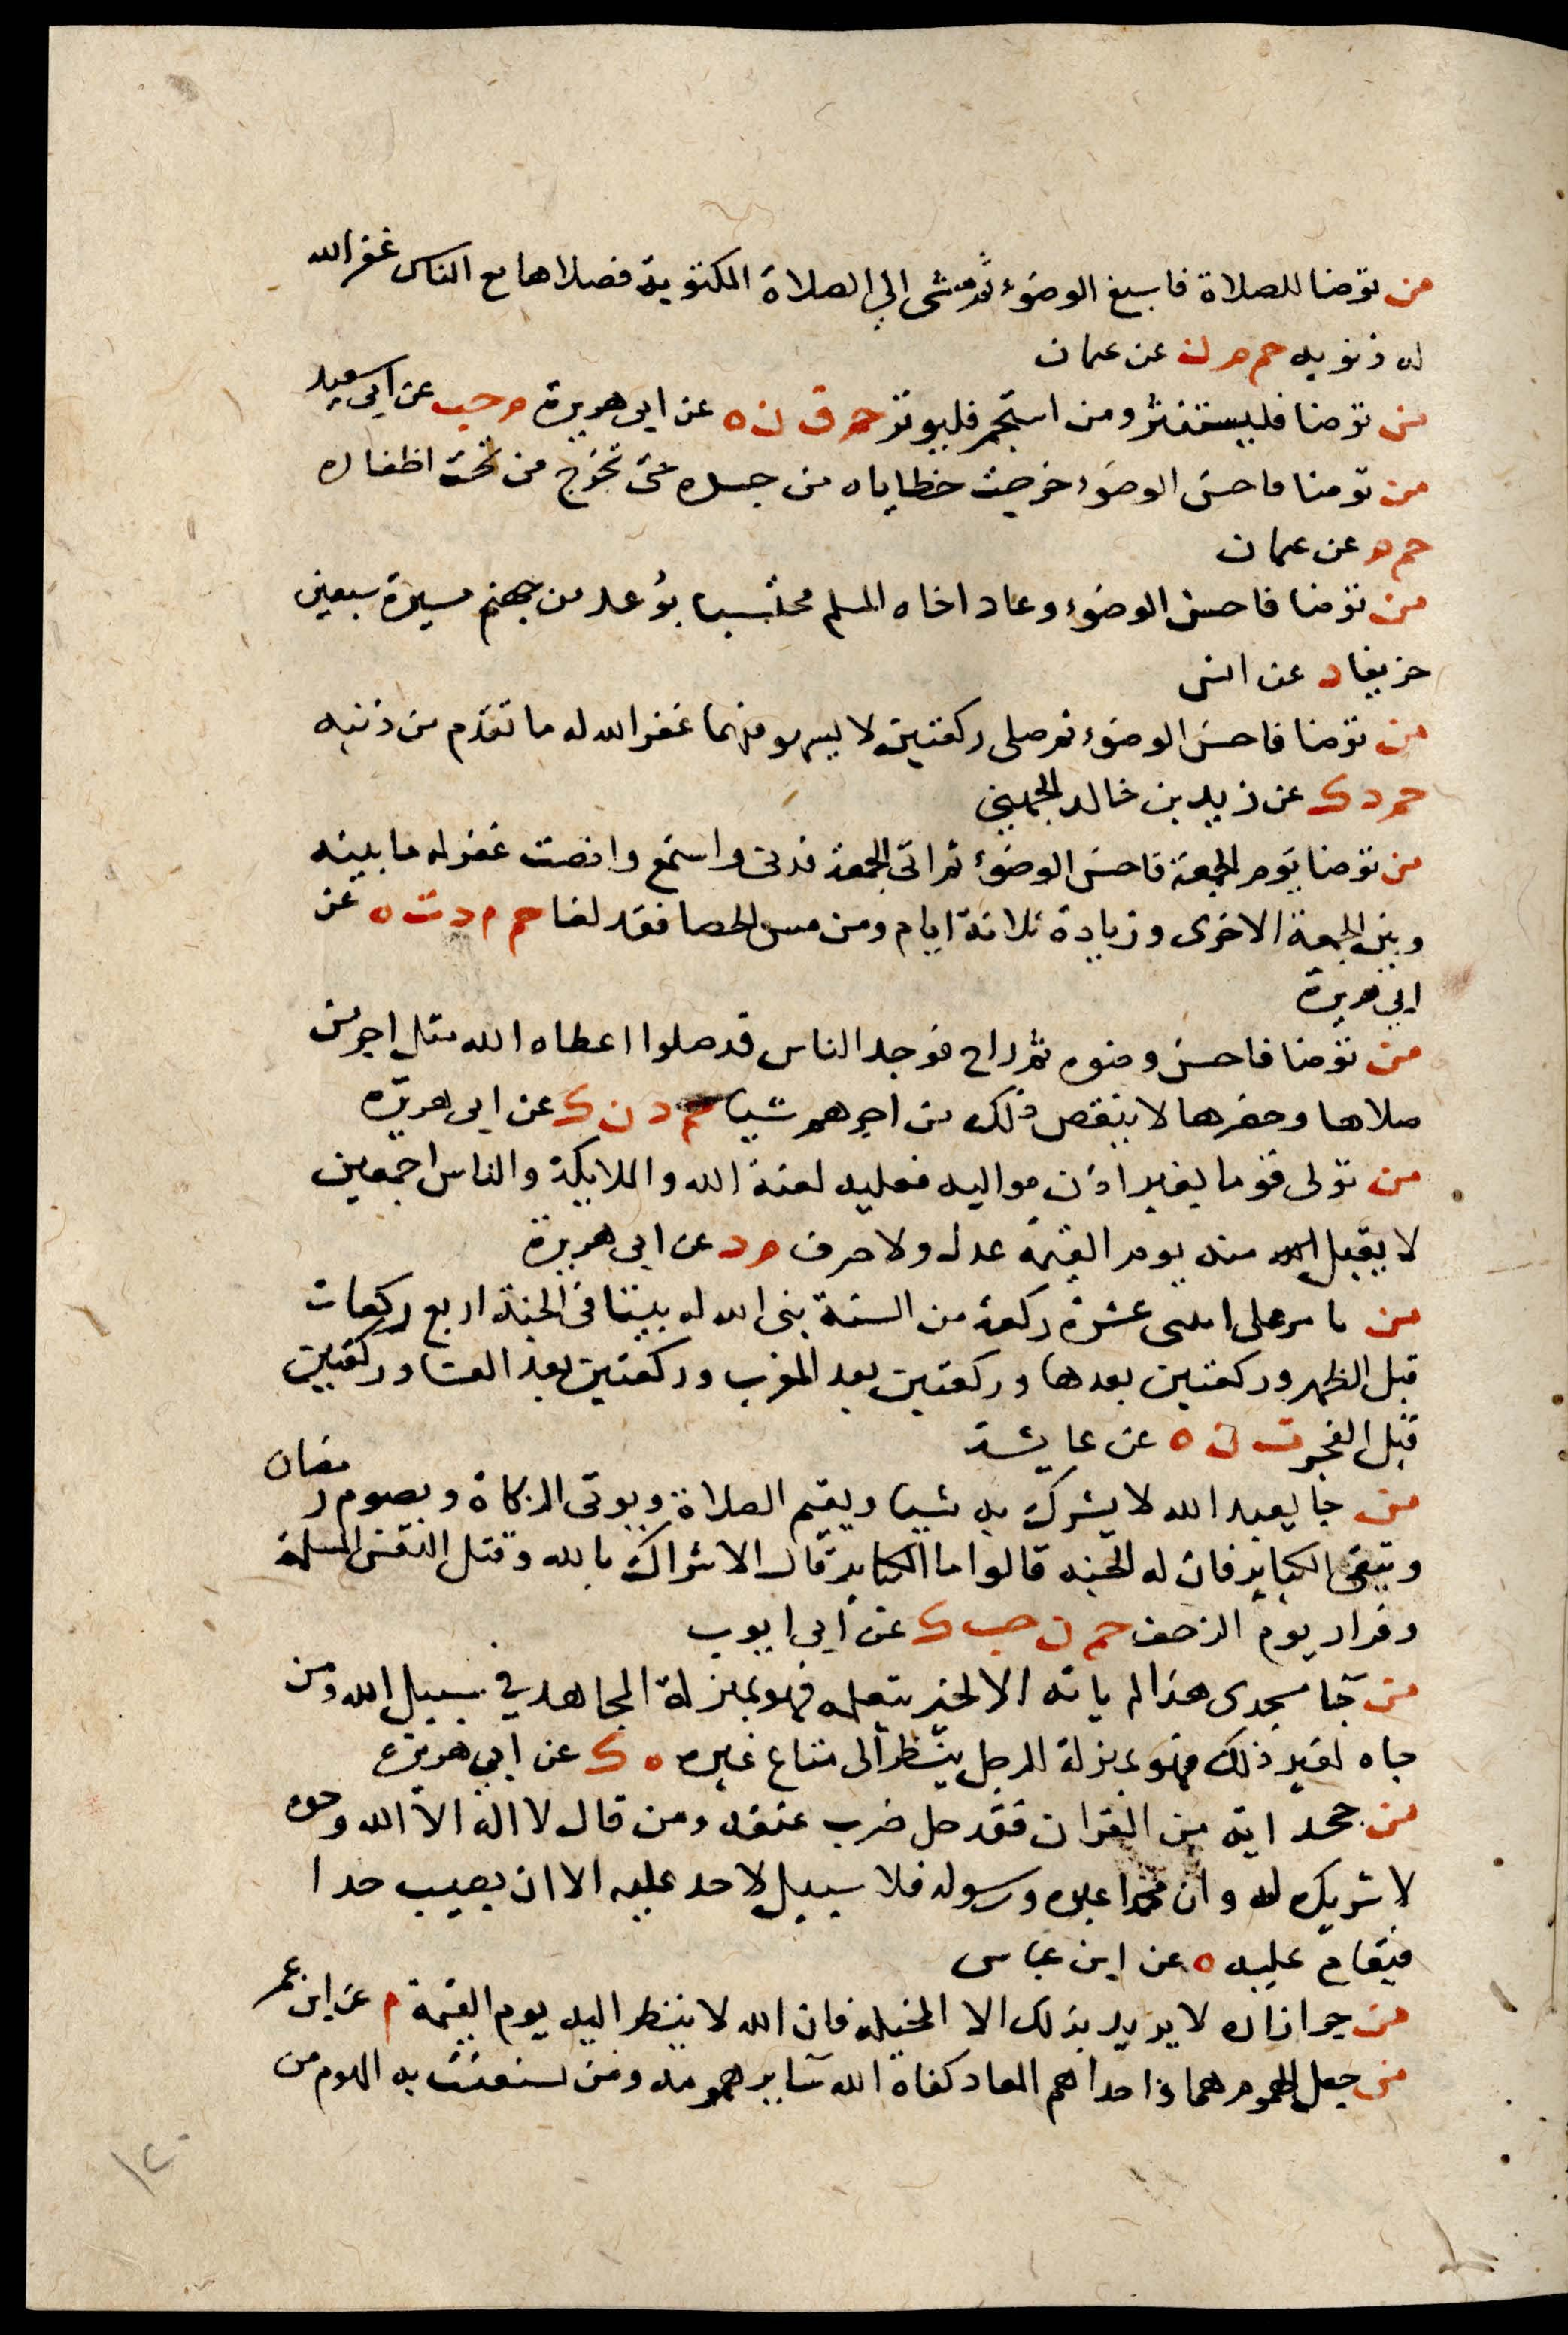 من توضا للصلاة فاسبغ الوضوء ثم مشى الي الصلاة المكتوبة فصلاها مع الناس غفر الله
له ذنوبه حم م ن عن عثمان
من توضا فليستنثر ومن استجمر فليوتر حم ق ن ه عن ابي هريرة م حب عن ابي سعيد
من توضا فاحسن الوضوء خرجت خطاياه من جسده حتى تخرج من تحت اظفاره
حم م عن عثمان
من توضا فاحسن الوضوء وعاد اخاه المسلم محتسبا بوعد من جهنم مسيرة سبعين
خريفا د عن انس
من توضا فاحسن الوضوء ثم صلى ركعتين لا يسهو فيهما غفر الله له ما تقدم من ذنبه
حم د ك عن زيد بن خالد الجهني
من توضا يوم الجمعة فاحسن الوضوء ثم اتى الجمعة فدنى واستمع وانصت غفر له ما بينه
وبين الجمعة الاخرى وزيادة ثلاثة ايام ومن مس الحصا فقد لغا حم م د ت ه عن
ابي هريرة
من توضا فاحسن وضوه ثم راح فوجد الناس قد صلوا اعطاه الله مثل اجر من
صلاها وحضرها لا ينقص ذلك من اجرهم شيا حم د ن ك عن ابي هريره
من تولى قوما بغير اذن مواليه فعليه لعنة الله والملايكة والناس اجمعين
لا يقبل الله منه يوم القيمة عدل ولا صرف م د عن ابي هريرة
من ثابر على اثنى عشرة ركعة من السنة بنى الله له بيتا في الجنة اربع ركعات
قبل الظهر وركعتين بعدها وركعتين بعد المغرب وركعتين بعد العشا وركعتين
قبل الفجر ت ن ه عن عايشة
من جا يعبد الله لا يشرك به شيا ويقيم الصلاة ويوتى الزكاة ويصوم رمضان
ويتقى الكباير فان له الجنة قالوا ما الكباير قال الاشراك بالله وقتل النفس المسلمة
وفرار يوم الزحف حم ن حب ك عن ابي ايوب
من جا مسجدى هذا لم ياته الا لخير يتعلمه فهو بمنزلة المجاهد في سبيل الله ومن
جاه لغير ذلك فهو بمنزلة الرجل ينظر الى متاع غيره ه ك عن ابي هريرة
من جحد اية من القران فقد حل ضرب عنقه ومن قال لا اله الا الله وحده
لا شريك له وان محمدا عبده ورسوله فلا سبيل لاحد عليه الا ان يصيب حدا
فيقام عليه ه عن ابن عباس
من جر ازاره لا يريد بذلك الا المخيلة فان الله لا ينظر اليه يوم القيمة م عن ابن عمر
من جعل الهموم هما واحدا هم المعاد كفاه الله ساير همومه ومن تشعبت به الهموم من
١٢٠